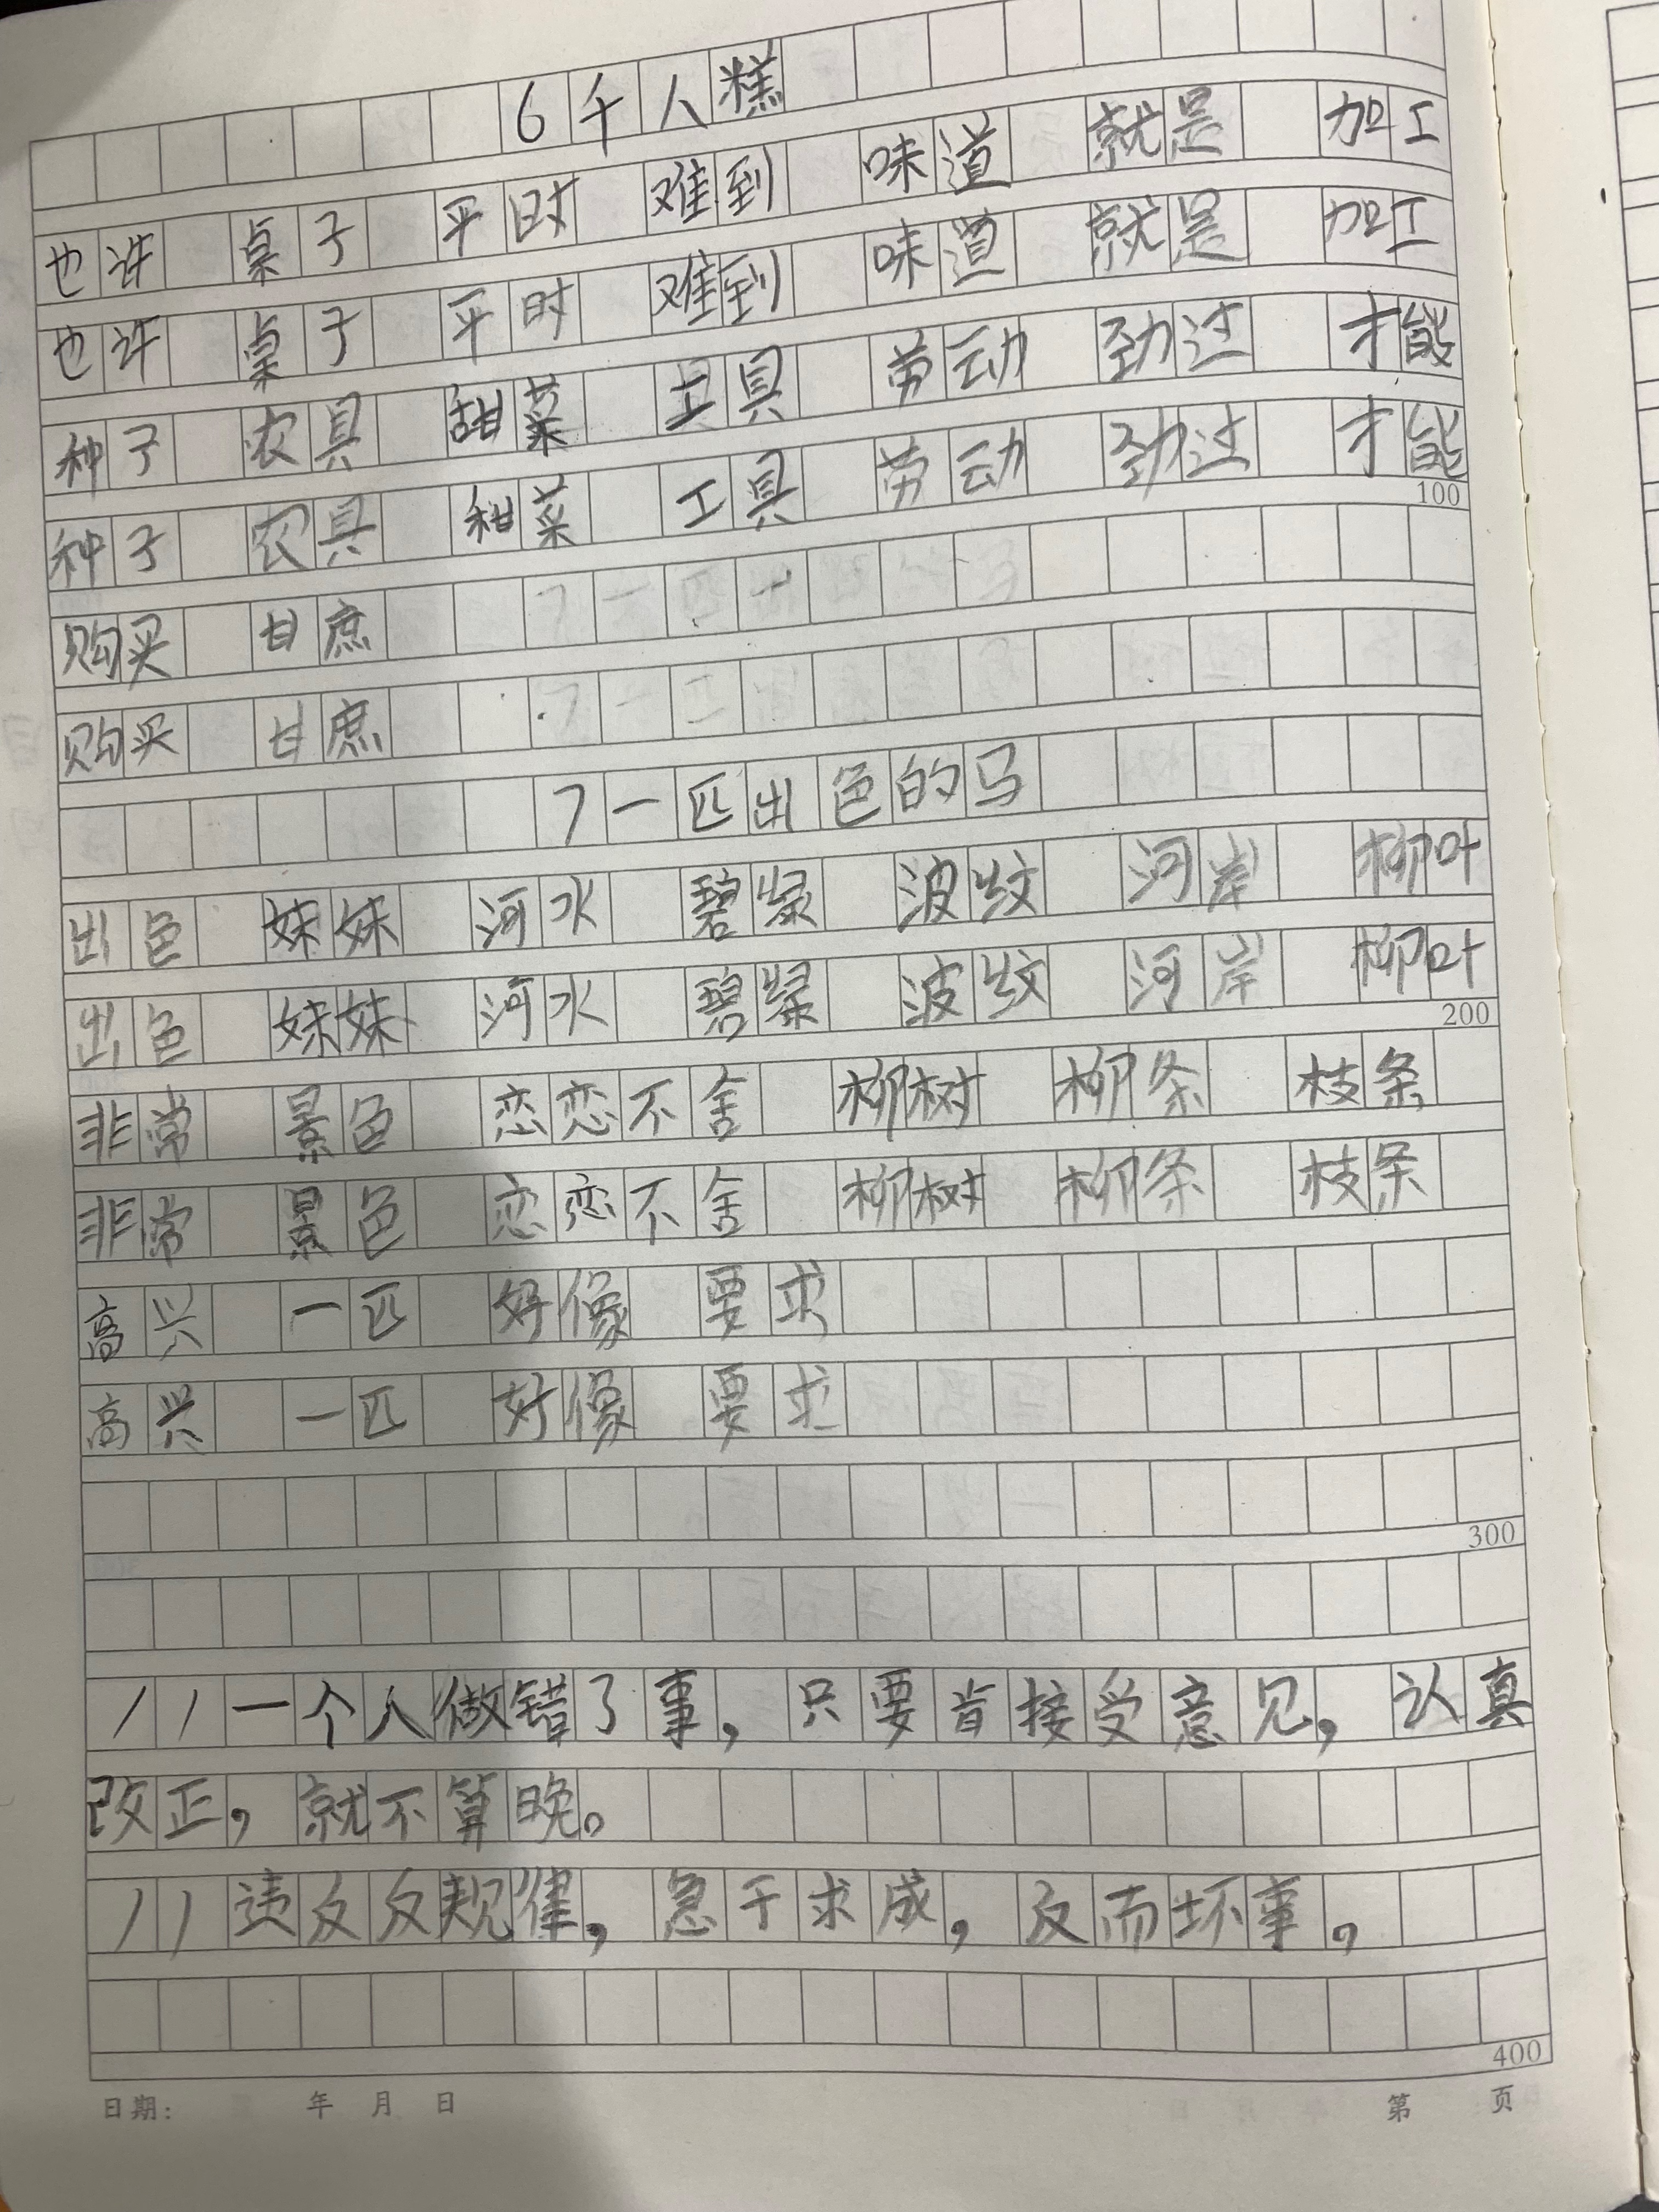 6千人糕
也许 桌子 平时 难到 味道 就是 加工
也许 桌子 平时 难到 味道 就是 加工
种子 农具 甜菜 工具 劳动 劲过 才能
种子 农具 甜菜 工具 劳动 劲过 才能
100
购买 甘蔗
购买 甘蔗
7一匹出色的马
出色 妹妹 河水 碧绿 波纹 河岸 柳叶
出色 妹妹 河水 碧绿 波纹 河岸 柳叶
200
非常 景色 恋恋不舍 柳树 柳条 枝条
非常 景色 恋恋不舍 柳树 柳条 枝条
高兴 一匹 好像 要求
高兴 一匹 好像 要求
300
11一个人做错了事，只要肯接受意见，认真
改正，就不算晚。
11违反反规律，急于求成，反而坏事。
400
日期： 年 月 日 第 页